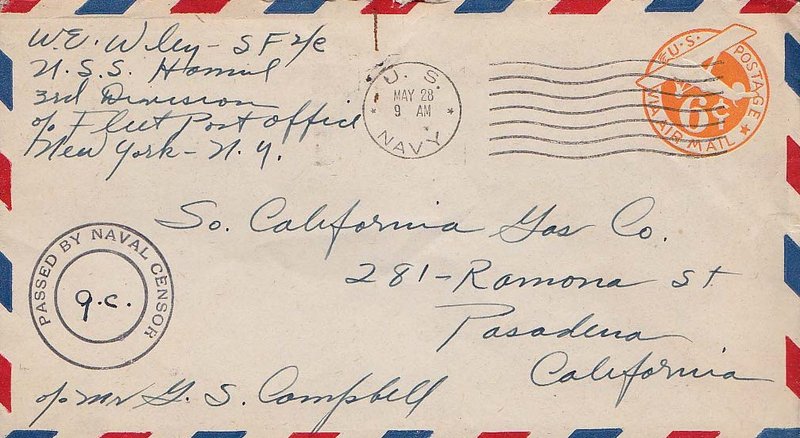 W.E. Wiley - SF 2/c
U.S.S. Hamul
3rd Division
c/o Fleet Post Office
New York - N.Y.
U. S.
MAY 28
9 AM
NAVY
U.S. POSTAGE
6¢
VIA AIR MAIL
So. California Gas Co.
281 - Ramona St
Pasadena
California
PASSED BY NAVAL CENSOR
g.c.
c/o Mr G. S. Campbell